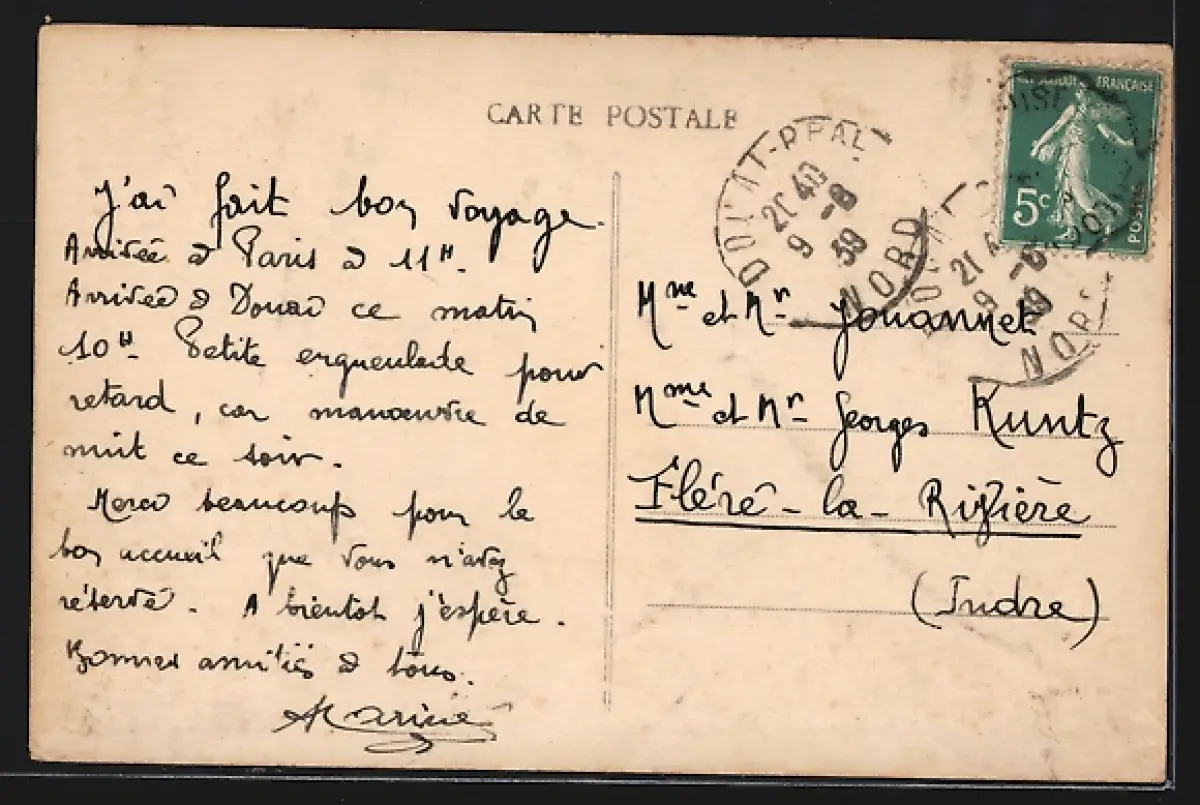 CARTE POSTALE
J'ai fait bon voyage.
Arrivée à Paris à 11H.
Arrivée à Douai ce matin
10H. Petite engueulade pour
retard, car manœuvre de
nuit ce soir.
Merci beaucoup pour le
bon accueil que vous m'avez
réservé. A bientôt j'espère.
Bonnes amitiés à tous.
RÉPUBLIQUE FRANÇAISE
5c
POSTES
DOUAI-PPAL
21 40
9 -8
39
NORD
21 4
9 -8
39
NORD
Mme et Mr Jouannet
Mme et Mr Georges Kuntz
Fléré-la-Rivière
(Indre)